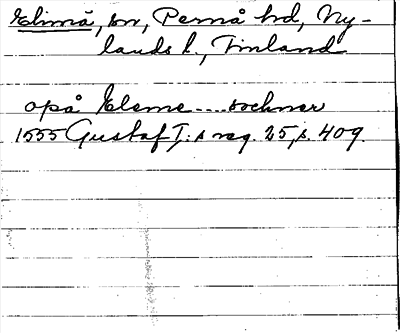 Elimä, sn, Pernå hd, Ny-
lands l., Finland
opå Eleme .... sochner
1555 Gustaf I:s reg. 25, s. 409.